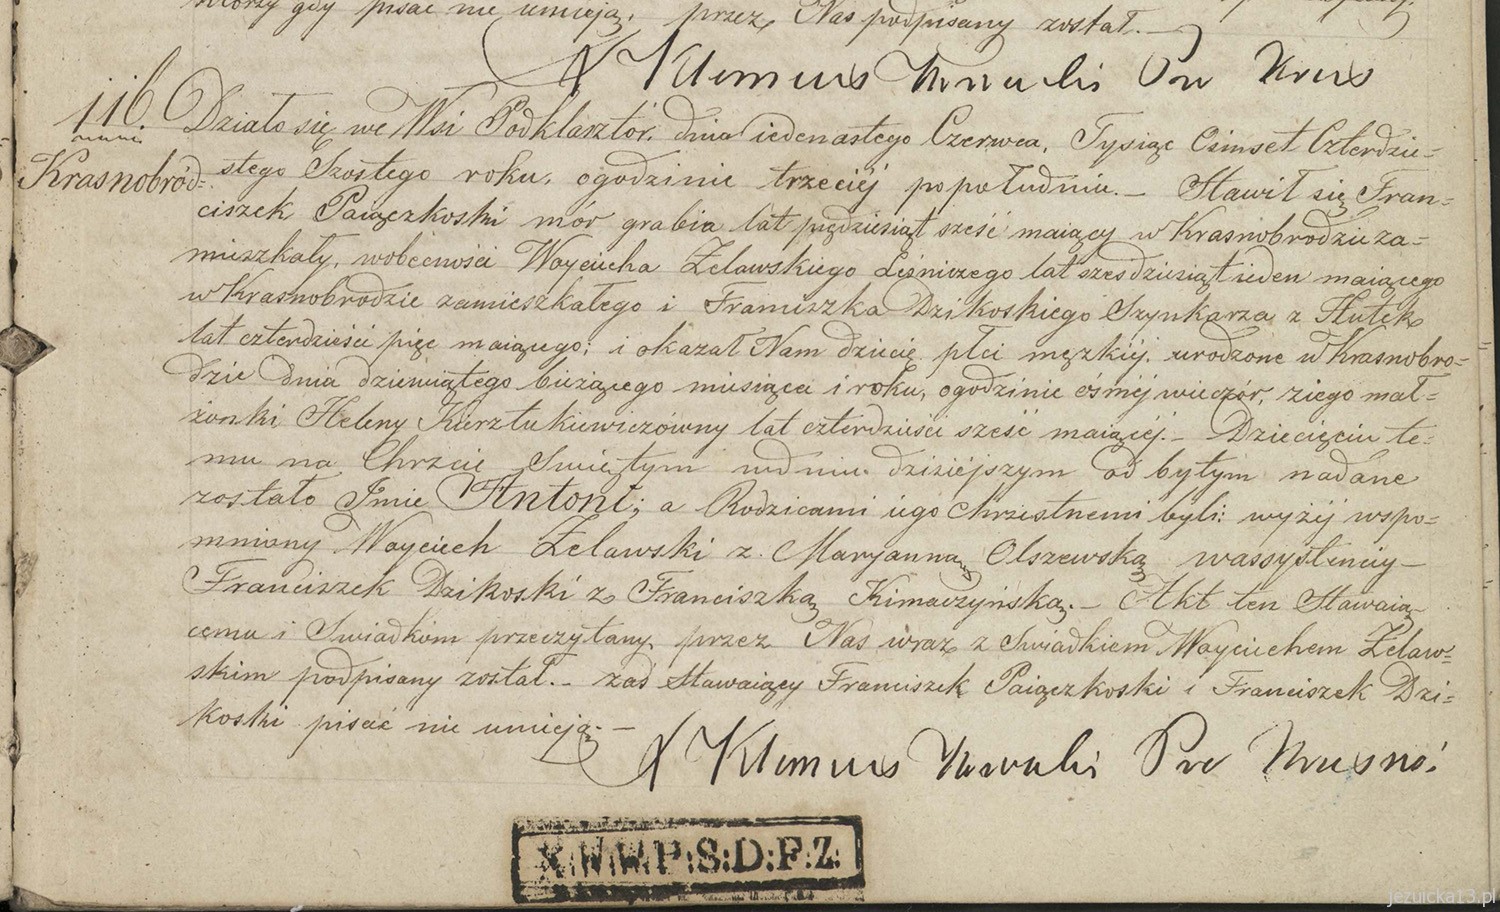 którzy gdy pisać nie umieją, przez Nas podpisany został.—
X Klemens Kowalski Pro Kras
116.
Krasnobród=
Działo się we Wsi Podklasztór, dnia iedenastego Czerwca, Tysiąc Ośmset Czterdzie=
stego Szóstego roku, ogodzinie trzeciéj popołudniu.— Stawił się Fran=
ciszek Paiączkoski mór grabia lat piędziesiąt sześć maiący w Krasnobrodzie za=
mieszkały, wobecności Woyciecha Zelawskiego Leśniczego lat szesdziesiąt ieden maiącego
w Krasnobrodzie zamieszkałego i Franciszka Dzikoskiego Szynkarza z Hutek
lat czterdzieści pięć maiącego; i okazał Nam dziecię płci męzkiéj, urodzone w Krasnobro=
dzie dnia dziewiątego bieżącego miesiąca i roku, ogodzinie ósméj wieczór, ziego mał=
żonki Heleny lat czterdzieści sześć maiącéj.— Dziecięciu te=
mu na Chrzcie Swiętym wdniu dzisiéjszym odbytym nadane
zostało Jmie Antoni; a Rodzicami iego Chrzestnemi byli: wyżéj wspo=
mniony Woyciech Zelawski z Maryanną Olszewską wassystencij—
Franciszek Dzikoski z Franciszką Kimaczyńską.— Akt ten Stawaią=
cemu i Swiadkom przeczytany, przez Nas wraz z Swiadkiem Woyciechem Zelaw=
skim podpisany został.— zaś Stawaiący Franciszek Paiączkoski i Franciszek Dzi=
koski pisać nie umieją.—
X Klemens Kowalski Pro Krasno:
P:S:D:P:Z.
jezuicka13.pl